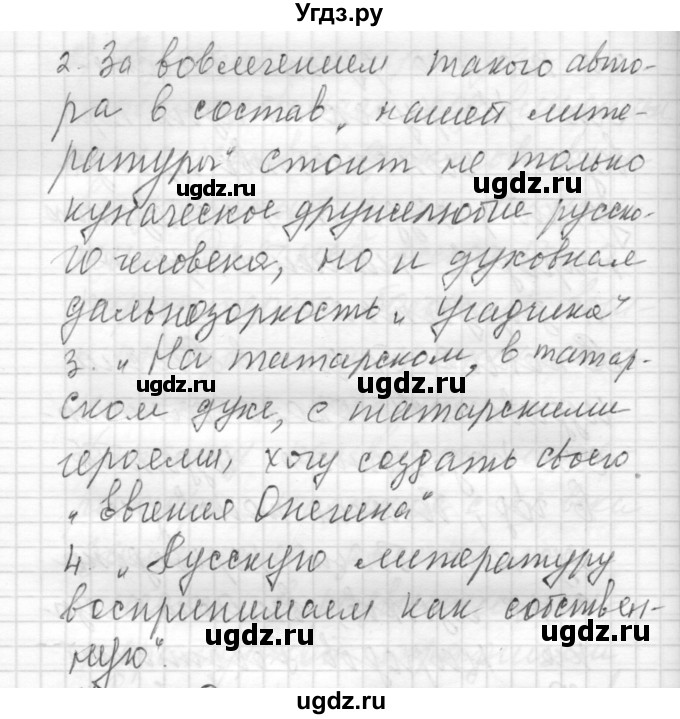 Угдз.ру
2. За вовлечением такого авто-
ра в состав „нашей лите-
ратуры" стоит не только
ugdz.ru ugdz.ru
куначеское дружелюбие русско-
го человека, но и духовная
дальнозоркость „угадчика"
3. „На татарском, в татар-
ugdz.ru ugdz.ru
ском духе, с татарскими
героями, хочу создать своего
„Евгения Онегина"
4. „Русскую литературу
воспринимаем как собствен-
ugdz.ru ugdz.ru
ную".
ugdz.ru